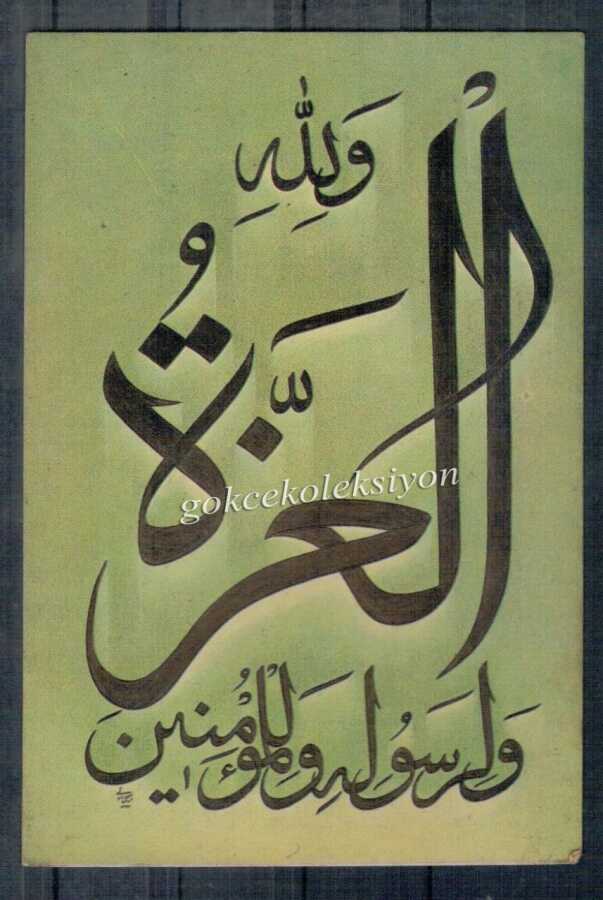 وَلِلّٰهِ
الْعِزَّةُ
وَلِرَسُولِهِ وَلِلْمُؤْمِنِينَ
gokcekoleksiyon